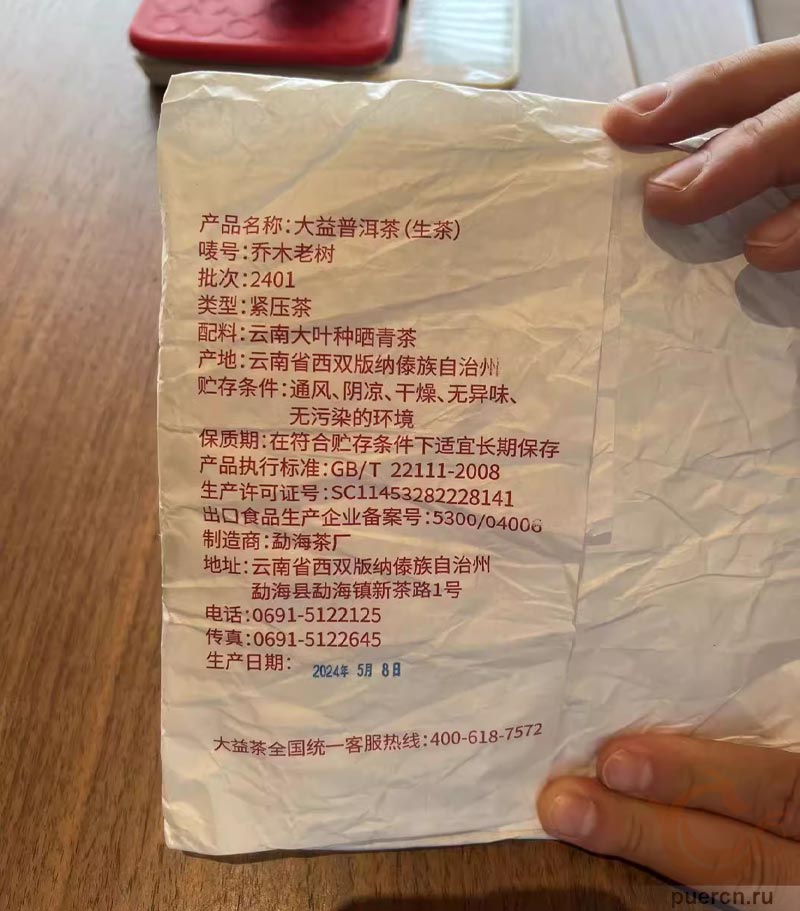 产品名称:大益普洱茶(生茶)
唛号:乔木老树
批次:2401
类型:紧压茶
配料:云南大叶种晒青茶
产地:云南省西双版纳傣族自治州
贮存条件:通风、阴凉、干燥、无异味、
无污染的环境
保质期:在符合贮存条件下适宜长期保存
产品执行标准:GB/T 22111-2008
生产许可证号:SC11453282228141
出口食品生产企业备案号:5300/04006
制造商:勐海茶厂
地址:云南省西双版纳傣族自治州
勐海县勐海镇新茶路1号
电话:0691-5122125
传真:0691-5122645
生产日期: 2024年 5月 8日
大益茶全国统一客服热线:400-618-7572
puercn.ru